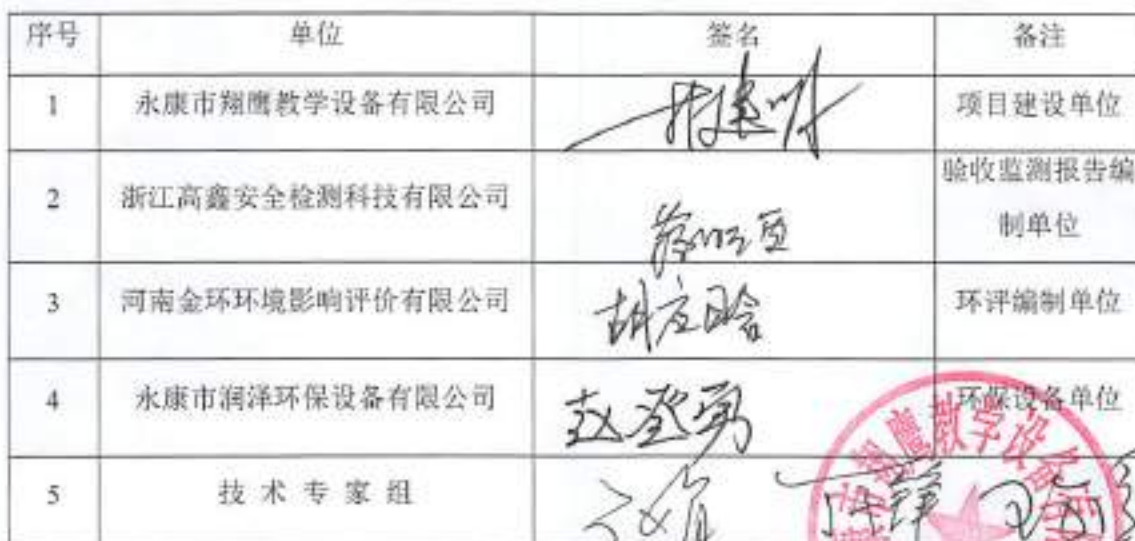 序号 单位 签名 备注
1 永康市翔鹰教学设备有限公司 项目建设单位
2 浙江高鑫安全检测科技有限公司 验收监测报告编
制单位
3 河南金环环境影响评价有限公司 胡应晗 环评编制单位
4 永康市润泽环保设备有限公司 环保设备单位
5 技术专家组
市翔鹰教学设备有限